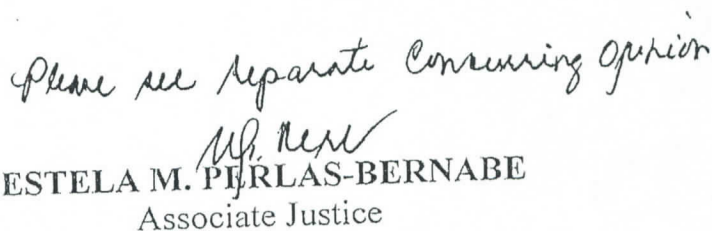 Please see separate Concurring Opinion
ESTELA M. PERLAS-BERNABE
Associate Justice